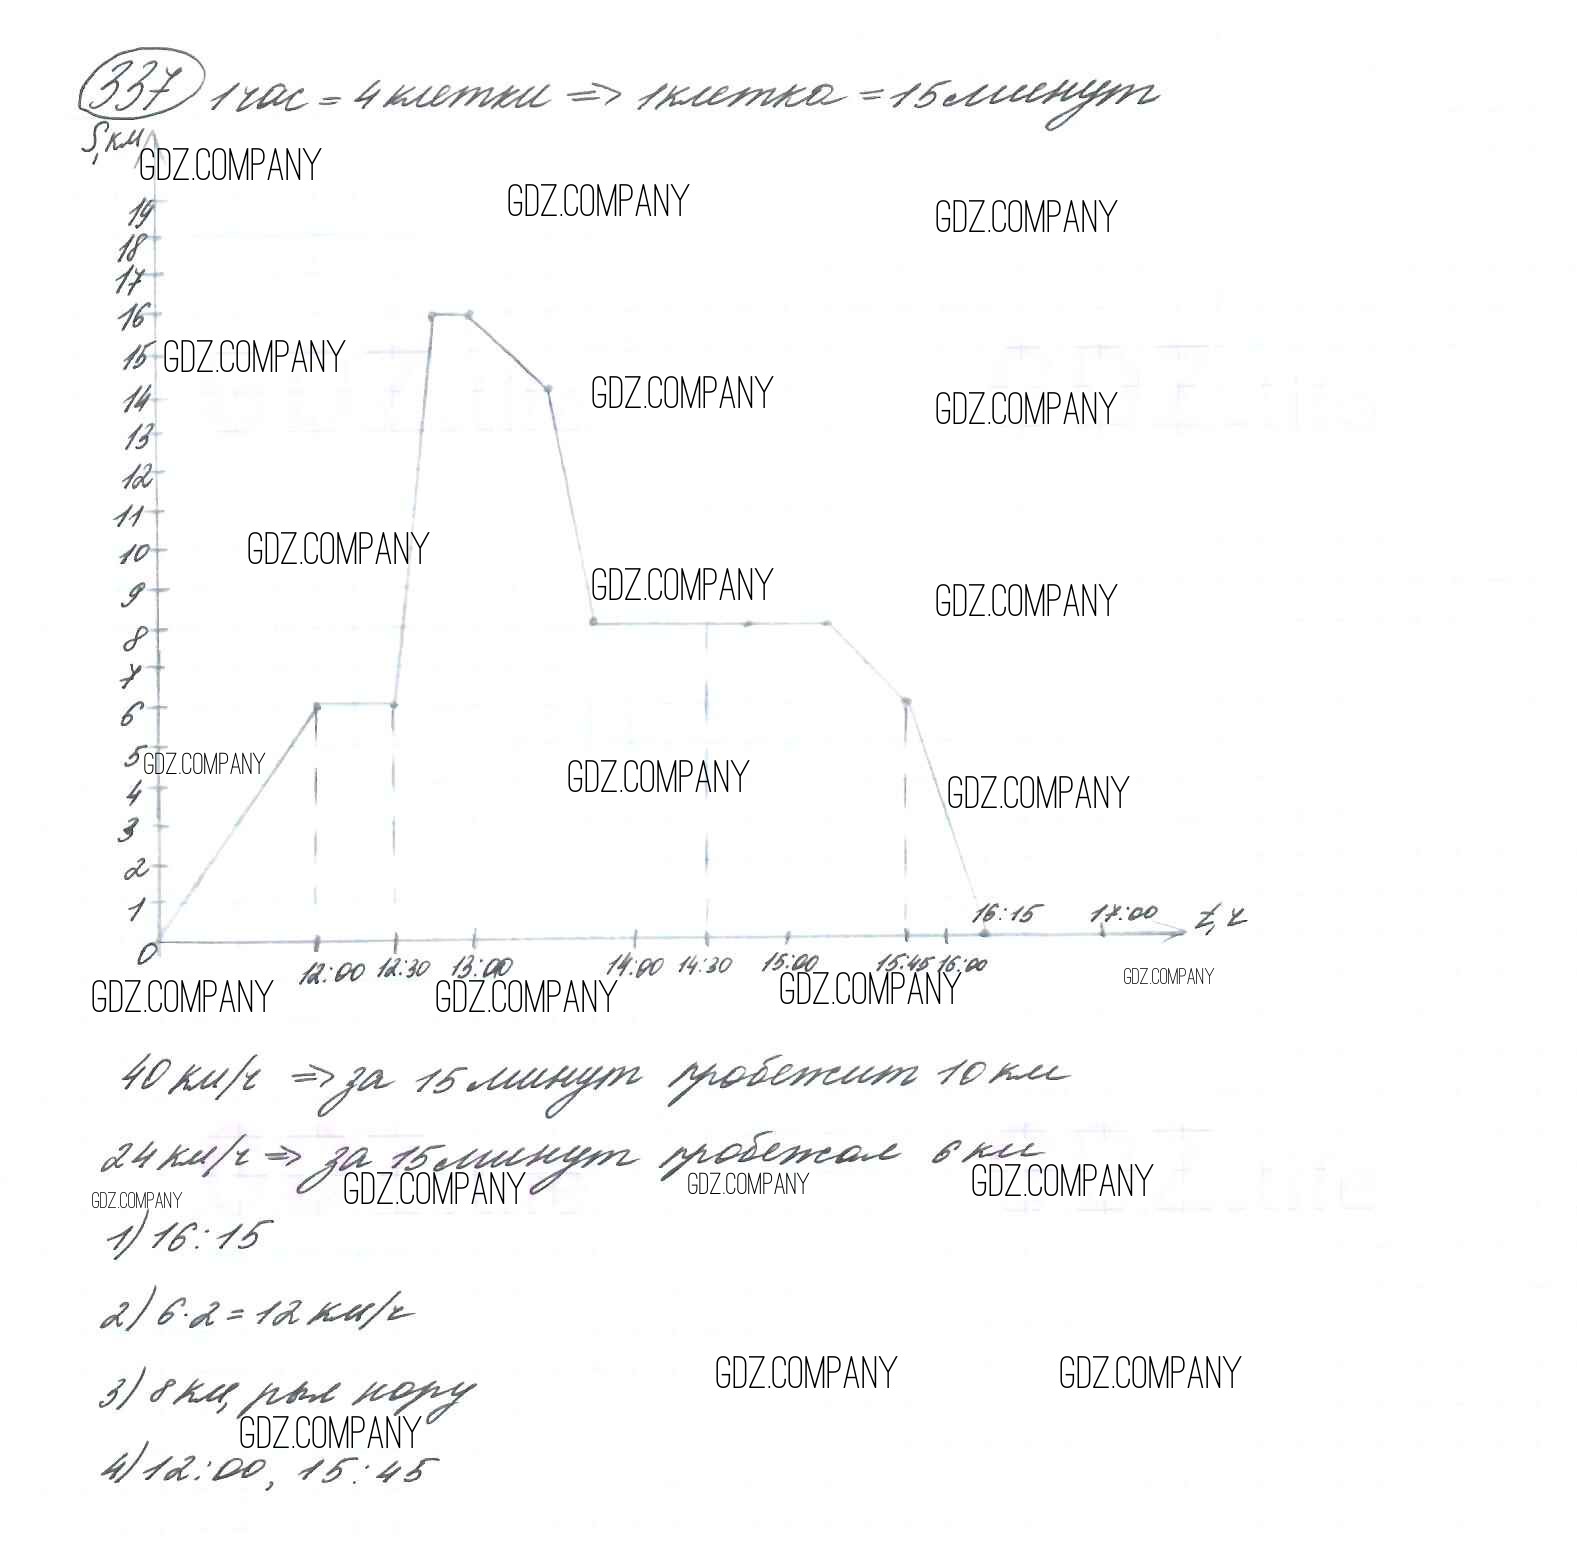 337 1 час = 4 клетки => 1 клетка = 15 минут
S, км
GDZ.COMPANY
GDZ.COMPANY
GDZ.COMPANY
19
18
17
16
GDZ.COMPANY
15
GDZ.COMPANY
14
GDZ.COMPANY
13
12
11
GDZ.COMPANY
10
GDZ.COMPANY
9
GDZ.COMPANY
8
7
6
5
GDZ.COMPANY
GDZ.COMPANY
GDZ.COMPANY
4
3
2
1
16:15 17:00 t, ч
0
12:00 12:30 13:00 14:00 14:30 15:00 15:45 16:00
GDZ.COMPANY
GDZ.COMPANY GDZ.COMPANY GDZ.COMPANY
40 км/ч => за 15 минут пробежит 10 км
24 км/ч => за 15 минут пробежал 6 км
GDZ.COMPANY GDZ.COMPANY GDZ.COMPANY GDZ.COMPANY
1) 16:15
2) 6·2 = 12 км/ч
GDZ.COMPANY GDZ.COMPANY
3) 8 км, рыл нору
GDZ.COMPANY
4) 12:00, 15:45